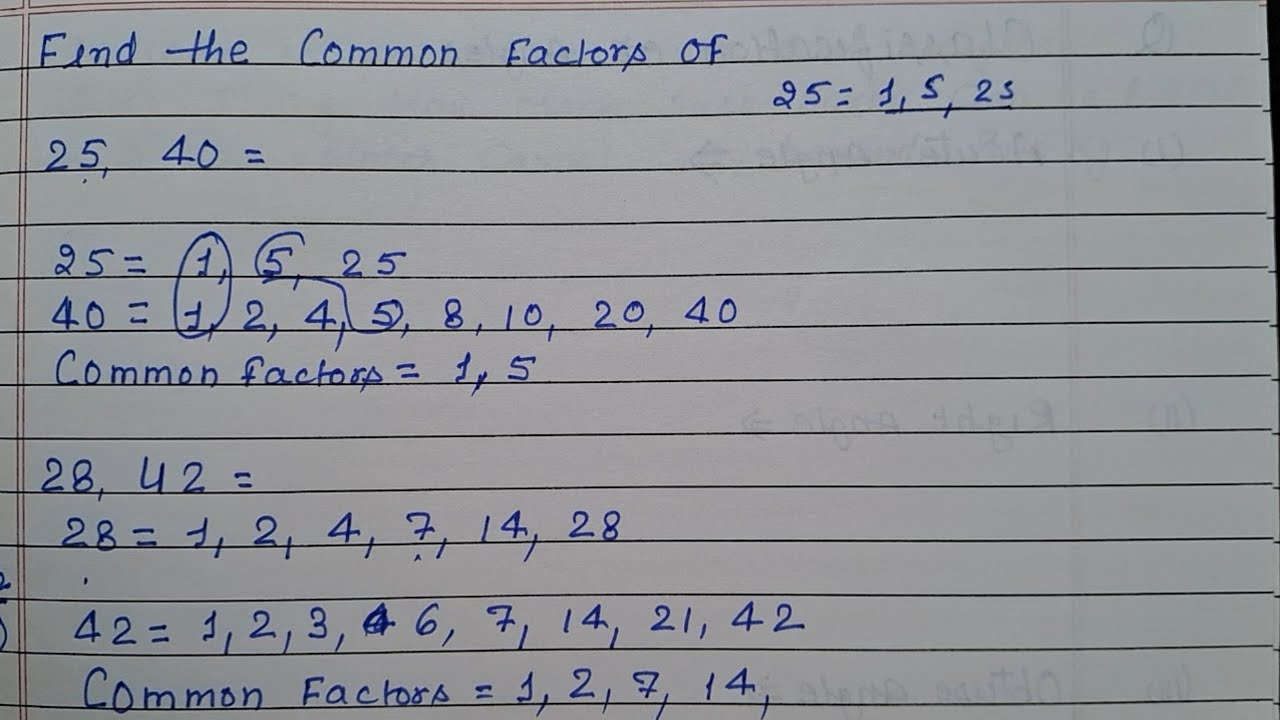 Find the Common Factors of
25 = 1, 5, 25
25, 40 =
25 = 1, 5, 25
40 = 1, 2, 4, 5, 8, 10, 20, 40
Common factors = 1, 5
28, 42 =
28 = 1, 2, 4, 7, 14, 28
42 = 1, 2, 3, 6, 7, 14, 21, 42
Common Factors = 1, 2, 7, 14,